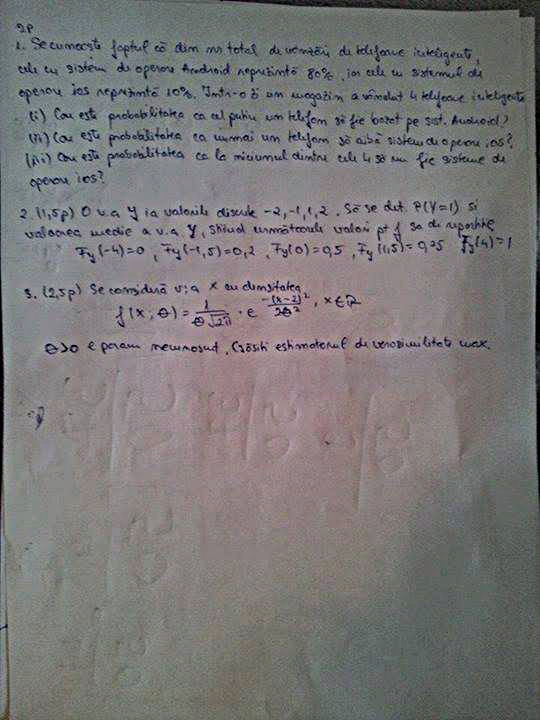 2p
1. Se cunoaște faptul că din nr total de vânzări de telefoane inteligente,
cele cu sistem de operare Android reprezintă 80%, iar cele cu sistemul de
operare ios reprezintă 10%. Într-o zi un magazin a vândut 4 telefoane inteligente
(i) Care este probabilitatea ca cel puțin un telefon să fie bazat pe sist. Android?
(ii) Care este probabilitatea ca numai un telefon să aibă sistem de operare ios?
(iii) Care este probabilitatea ca la niciunul dintre cele 4 să nu fie sisteme de
operare ios?
2. (1,5p) O v.a Y ia valorile discrete -2,-1,1,2. Să se det. P(Y=1) si
valoarea medie a v.a. Y, știind următoarele valori pt f sa de repartiție
Fy(-4)=0, Fy(-1,5)=0,2, Fy(0)=0,5, Fy(1,5)=0,75 Fy(4)=1
3. (2,5p) Se consideră v.a X cu densitatea
f(x;θ) = 1/(θ√2π) · e^(-(x-2)²/2θ²), x∈R
θ>0 e param necunoscut. Găsiti estimatorul de verosimilitate max.